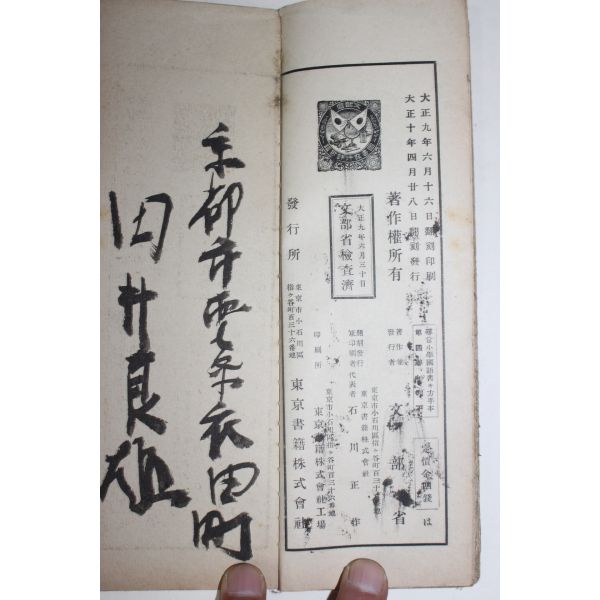 大正九年六月十六日翻刻印刷
大正十年四月廿八日翻刻發行
著作權所有
大正九年六月三十日
文部省檢查濟
尋常小學國語書キ方手本
定價金四錢
は
著作兼
發行者
文部省
東京市小石川區指ヶ谷町百三十六番地
東京書籍株式會社
翻刻發行
兼印刷者
代表者
石川正作
印刷所
東京市小石川區指ヶ谷町百三十六番地
東京書籍株式會社工場
發行所
東京市小石川區
指ヶ谷町百三十六番地
東京書籍株式會社
京都市
衣田町
田井良雄